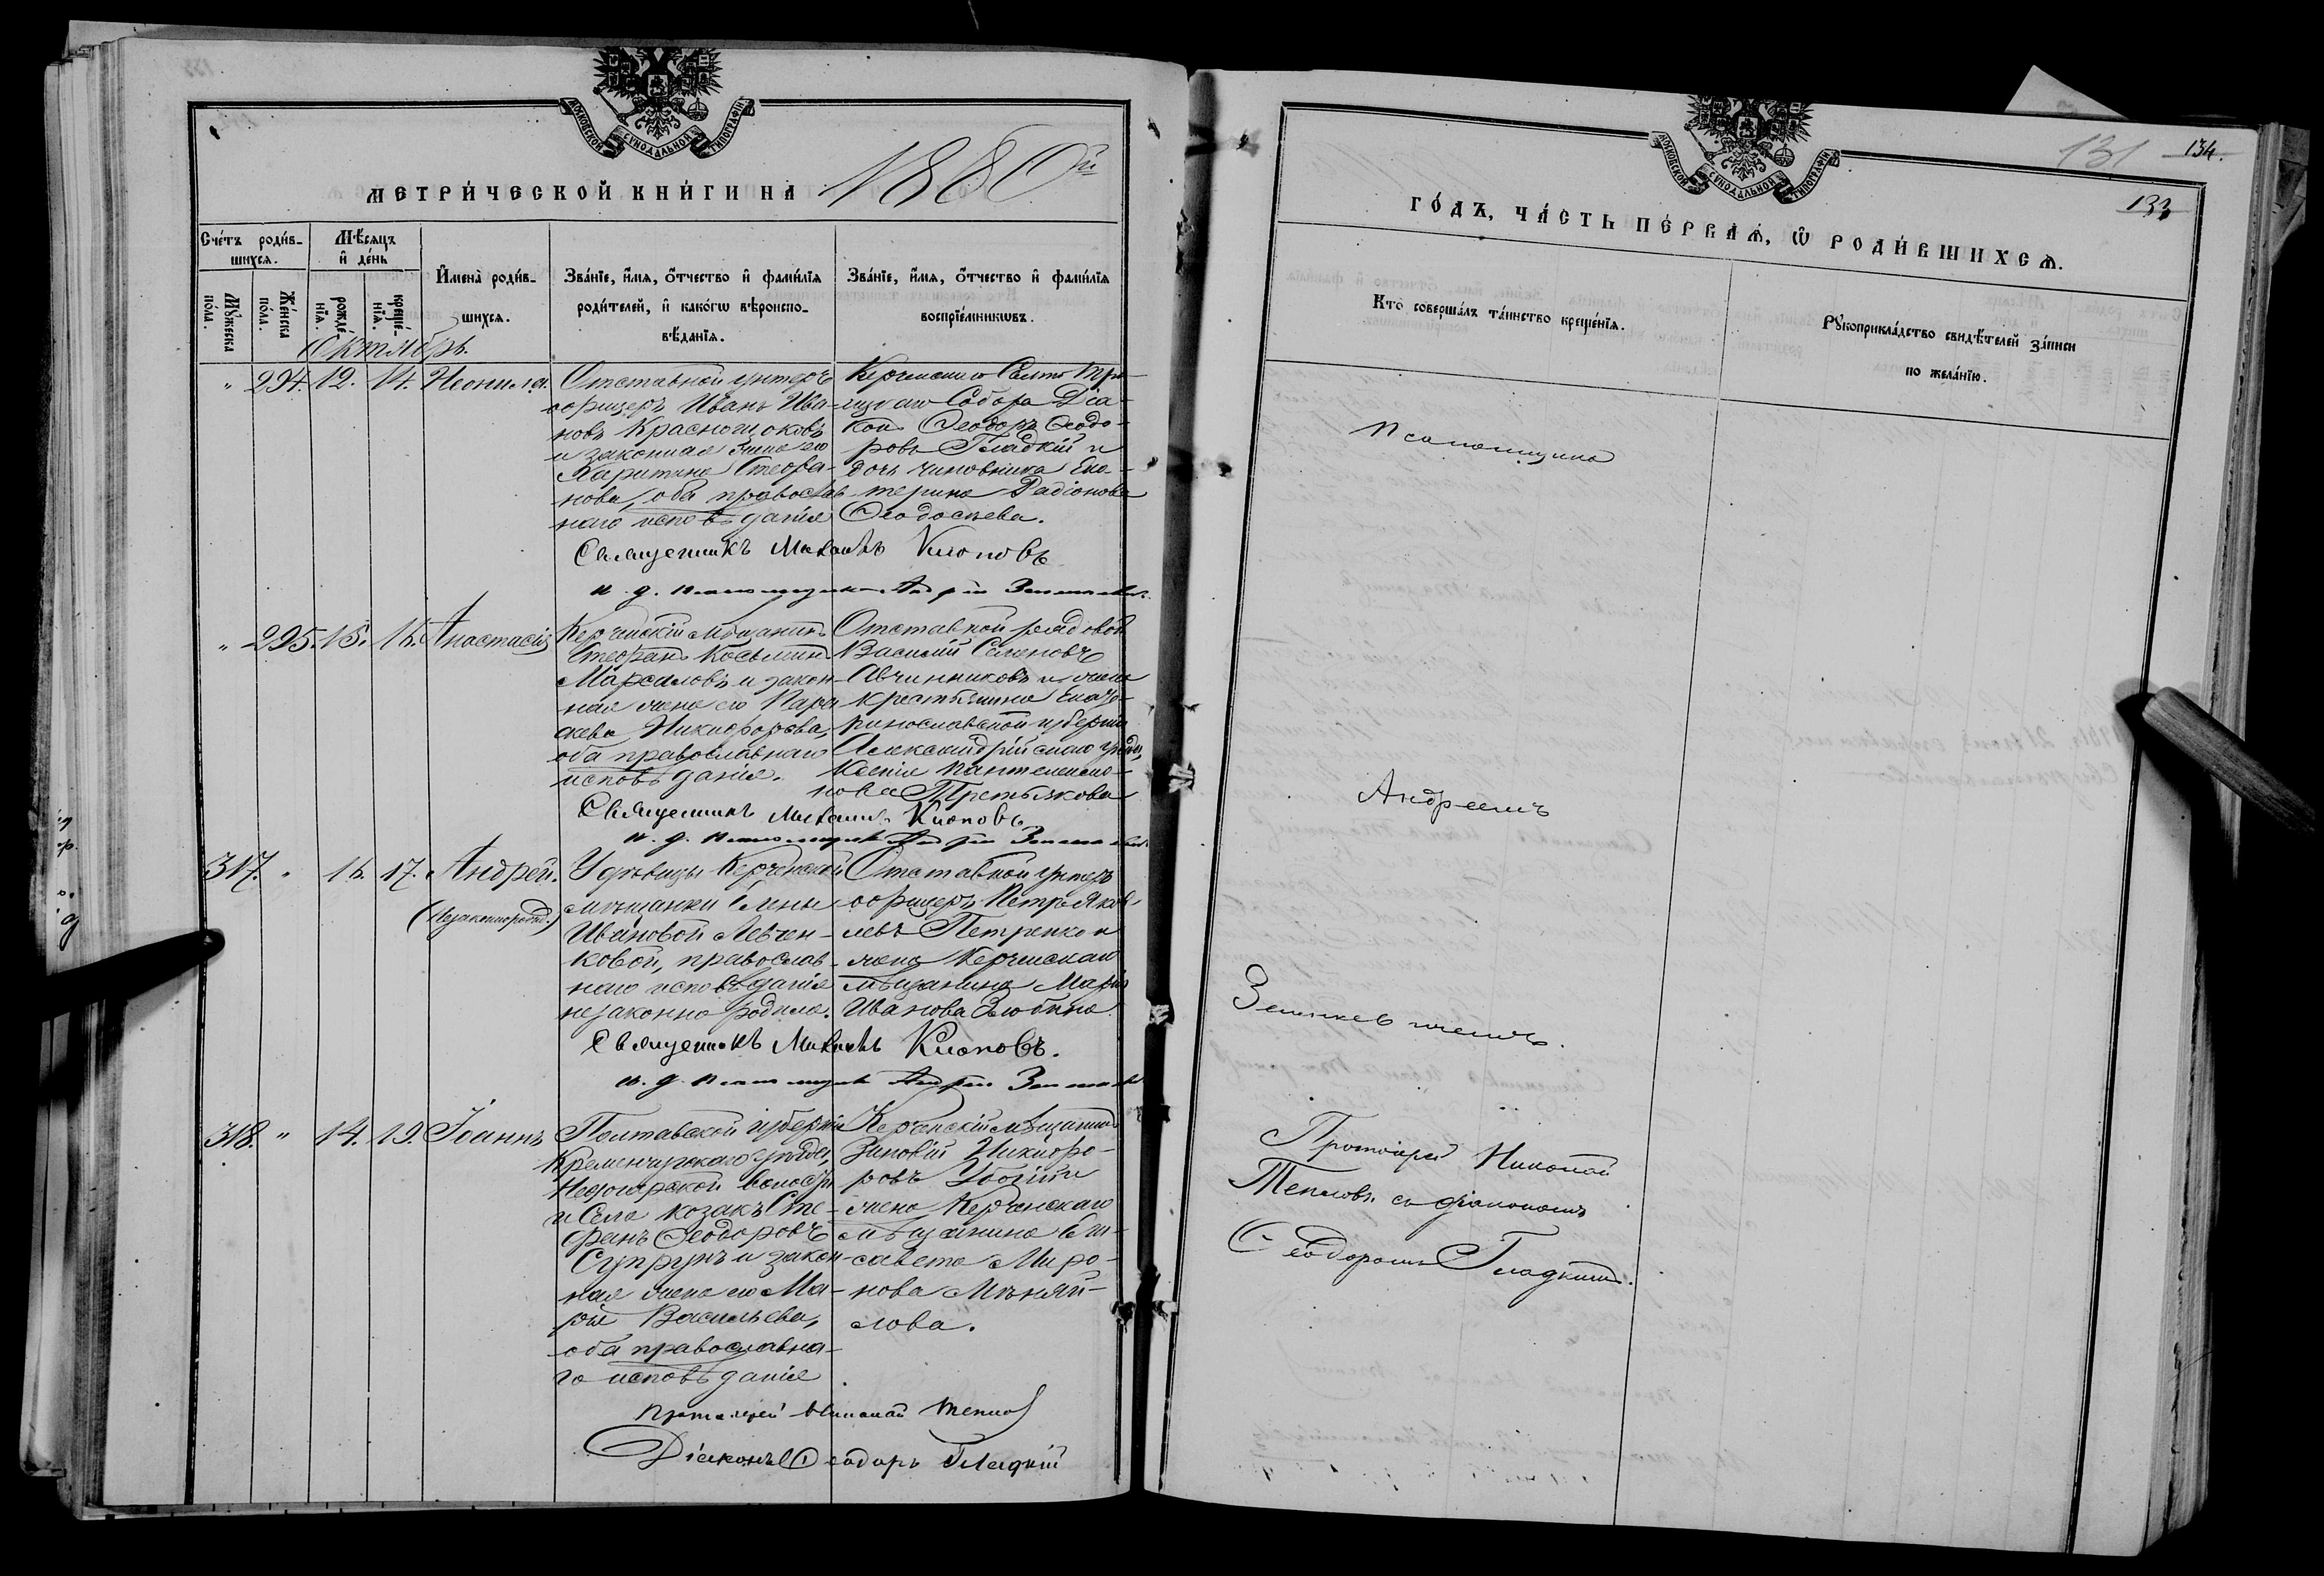 МОСКОВСКОЙ СѴНОДАЛЬНОЙ ТИПОГРАФІИ
МЕТРИ́ЧЕСКОЙ КНИ́ГИ НА 1880й
Сче́тъ роди́в-
шихся.
Мѣ́сяцъ
и де́нь
Мꙋжеска по́ла.
Же́нска по́ла.
рожде́-
нїѧ.
креще́-
нїѧ.
Имена̀ роди́в-
шихся.
Зва́нїе, и́мѧ, о́тчество и фами́лїѧ
роди́телей, и како́гѡ вѣроиспо-
вѣ́данїѧ.
Зва́нїе, и́мѧ, о́тчество и фами́лїѧ
воспрїе́мникѡвъ.
Октябрь.
" 294. 12. 14. Неонила.
Отставной унтеръ
офицеръ Иванъ Ива-
новъ Краснощоковъ
и законная жена его
Харитина Стефа-
нова, оба православ-
наго исповѣданія
Керченскаго Свято Тро-
ицкаго Собора Діа-
конъ Ѳеодоръ Ѳеодо-
ровъ Гладкій и
дочь чиновника Ека-
терина Радіонова
Ѳеодосьева.
Священникъ Михаилъ Клоповъ
и. д. псаломщика Андрей
" 295. 15. 16. Анастасія
Керченскій мѣщанинъ
Стефанъ Косьминъ
и закон-
ная жена его Пара-
скева Никифорова,
оба православнаго
исповѣданія.
Отставной рядовой
Василій Семеновъ
Авчинниковъ и жена
крестьянина Екате-
ринославской губерніи
Александрійскаго уѣзда,
Ксенія Пантелеимо-
нова Третьякова
Священникъ Михаилъ Клоповъ
и. д. псаломщика Андрей
317. " 16. 17. Андрей.
(Незаконнорожд.)
У дѣвицы Керченской
мѣщанки Елены
Ивановой Левчен-
ковой, православ-
наго исповѣданія
незаконно родила.
Отставной унтеръ
офицеръ Петръ Яков-
левъ Петренко и
жена Керченскаго
мѣщанина Марія
Иванова Злобина
Священникъ Михаилъ Клоповъ.
и. д. псаломщика Андрей
318. " 14. 19. Іоаннъ
Полтавской губерніи
Кременчугскаго уѣзда,
волости
и Села козакъ Сте-
фанъ Ѳеодоровъ
Супрунъ и закон-
ная жена его Ма-
рія Васильева,
оба православна-
го исповѣданія
Керченскій мѣщанинъ
Зиновій Никифо-
ровъ Убогій и
жена Керченскаго
мѣщанина Ели-
савета Миро-
нова Мѣняй-
лова.
Протоіерей Николай Тепловъ
Діаконъ Ѳеодоръ Гладкій
МОСКОВСКОЙ СѴНОДАЛЬНОЙ ТИПОГРАФІИ
131 134.
133
ГО́ДЪ, ЧА́СТЬ ПЕ́РВАѦ, Ѿ РОДИ́ВШИХСѦ.
Кто̀ соверша́лъ та́инство креще́нїѧ.
Рꙋкоприкла́дство свидѣ́телей за́писи
по жела́нїю.
Псаломщика
Андреемъ
Протоіерей Николай
Тепловъ съ діакономъ
Ѳеодоромъ Гладкимъ.